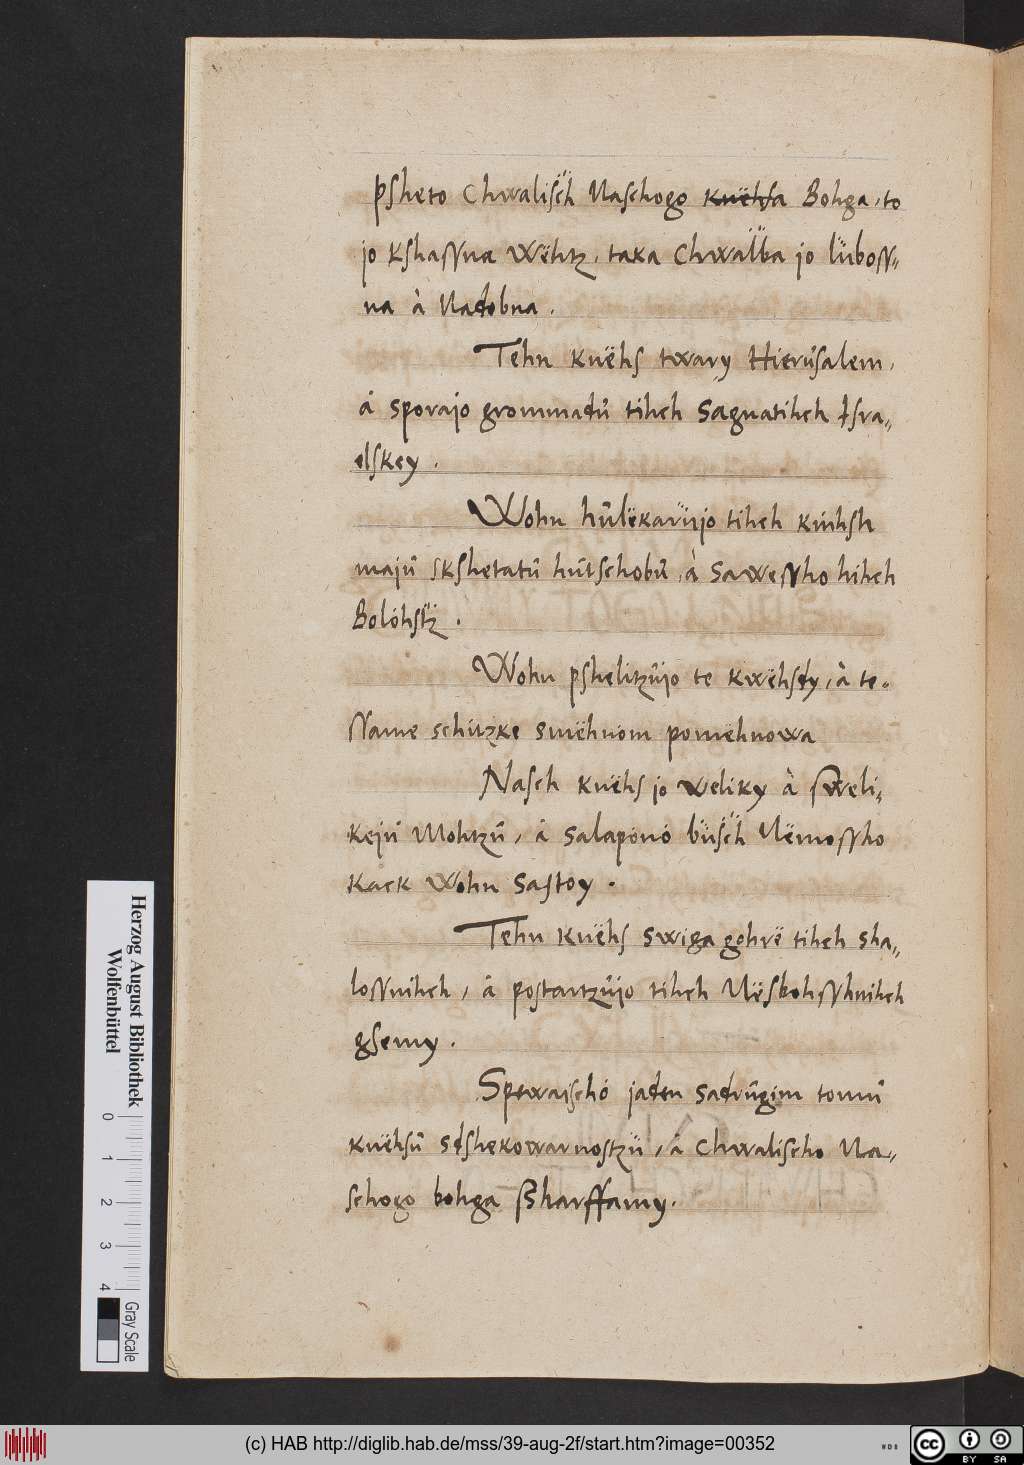 Psheto Chwalisch Naschogo knëhsa Bohga, to
jo kshassna Wëhtz, taka Chwalba jo lüboss-
na à Nadobna.
Tehn knëhs twary Hierusalem,
á sporajo grommadů tihch Sagnatihch Isra-
elskey.
Wohn hůlëkarüjo tihch
majů skshetatů hůtschobů, à Sawessho hihch
Bolóhstz.
Wohn pshelitzůjo te kwëhsdy, à te-
ssame schitzke smëhnóm pomëhnowa
Nasch knëhs jo weliky à sweli-
kejů Mohtzů, á salapónó büsch Nëmossho
kack Wohn Sastoy.
Tehn knëhs swiga gohrë tihch sha-
lossnihch, á postartzůjo tihch
gsemy.
Spewaischó jaden sadrůgim tomů
knëhsů sdshekowarnostzü, á Chwalischo Na-
schogo bohga Sharffamy.
Herzog August Bibliothek
Wolfenbüttel
0 1 2 3 4
Gray Scale
(c) HAB http://diglib.hab.de/mss/39-aug-2f/start.htm?image=00352
WDB
cc
BY SA